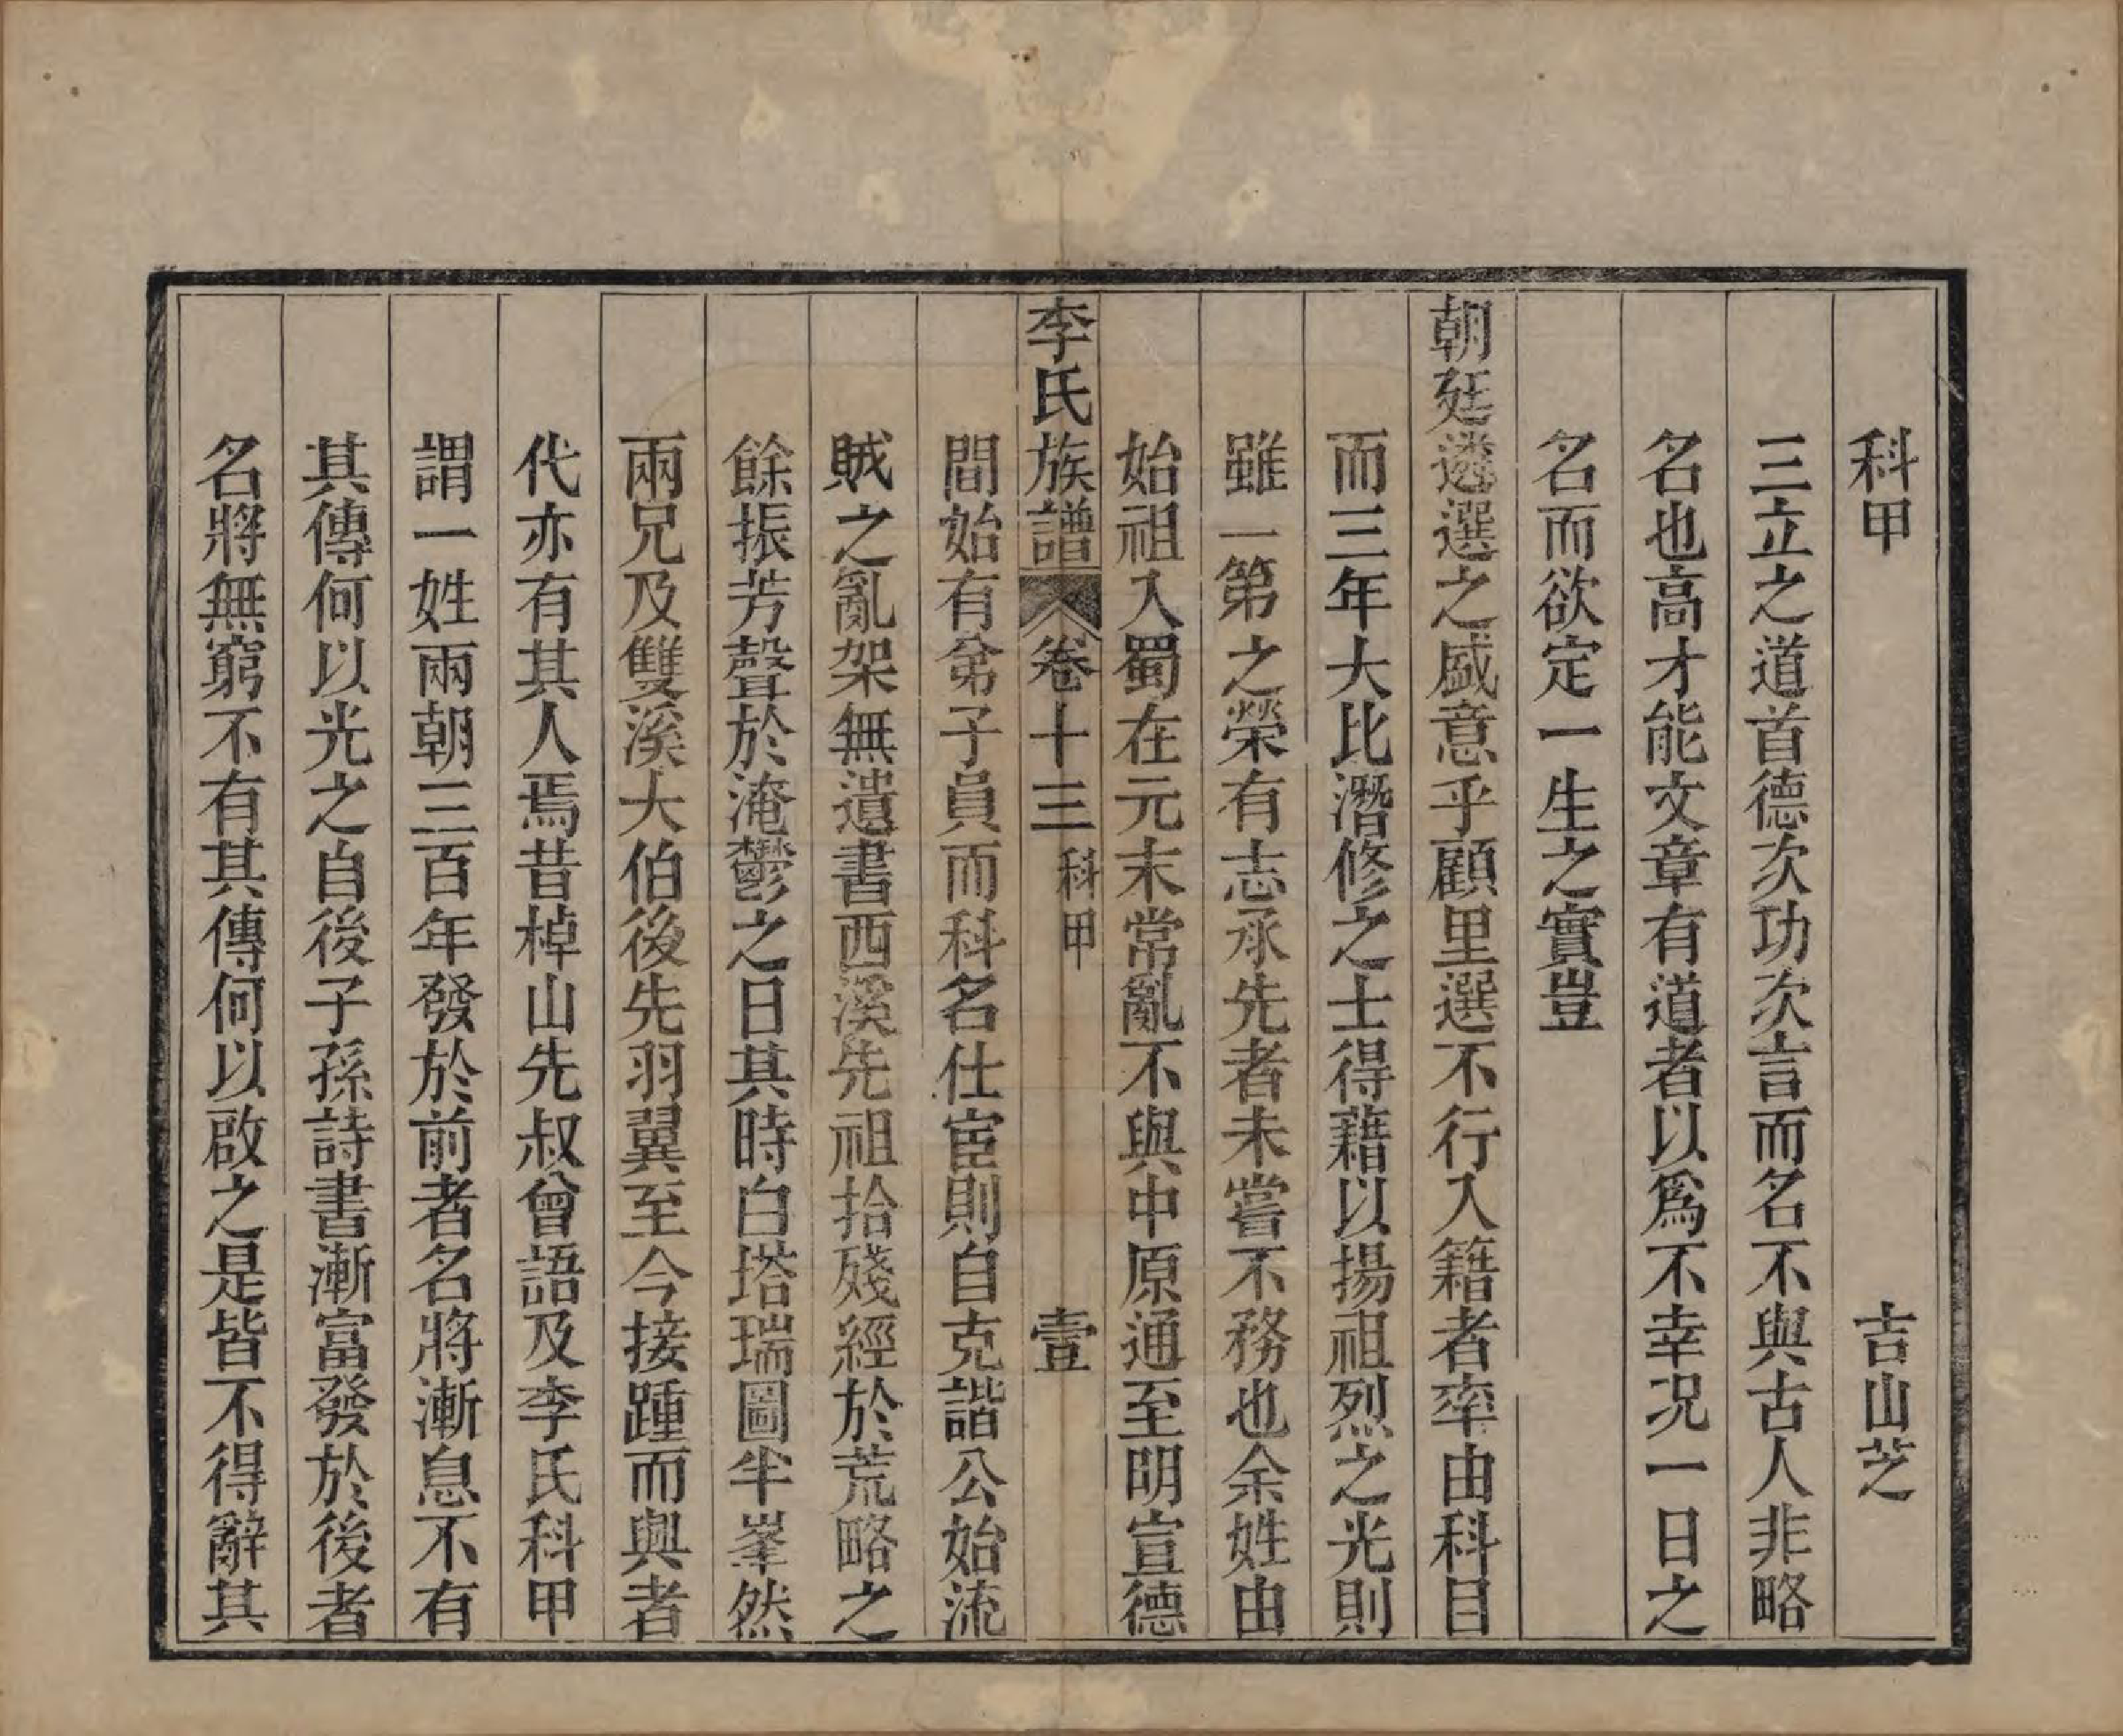 科甲　吉山芝
三立之道首德次功次言而名不與古人非略
名也高才能文章有道者以爲不幸况一日之
名而欲定一生之實豈
朝廷遴選之盛意乎顧里選不行入籍者率由科目
而三年大比潛修之士得藉以揚祖烈之光則
雖一第之榮有志承先者未嘗不務也余姓由
始祖入蜀在元末常亂不與中原通至明宣德
李氏族譜 卷十三 科甲 壹
間始有弟子員而科名仕宦則自克諧公始流
賊之亂架無遺書西溪先祖拾殘經於荒略之
餘振芳聲於淹鬱之日其時白塔瑞圖半峯然
兩兄及雙溪大伯後先羽翼至今接踵而興者
代亦有其人焉昔棹山先叔曾語及李氏科甲
謂一姓兩朝三百年發於前者名將漸息不有
其傳何以光之自後子孫詩書漸富發於後者
名將無窮不有其傳何以啟之是皆不得辭其